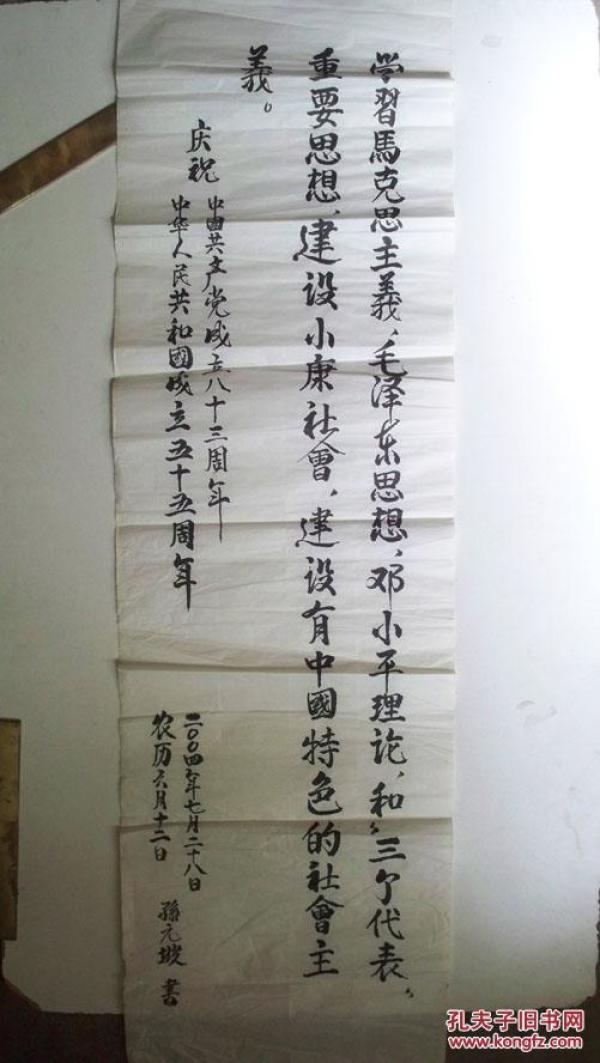 学習馬克思主義、毛泽东思想、邓小平理论，和“三个代表”
重要思想，建设小康社會，建设有中國特色的社會主
義。
庆祝
中国共产党成立八十三周年
中华人民共和國成立五十五周年
二〇〇四年七月二十八日
农历六月十二日
孫元坡 書
孔夫子旧书网
www.kongfz.com